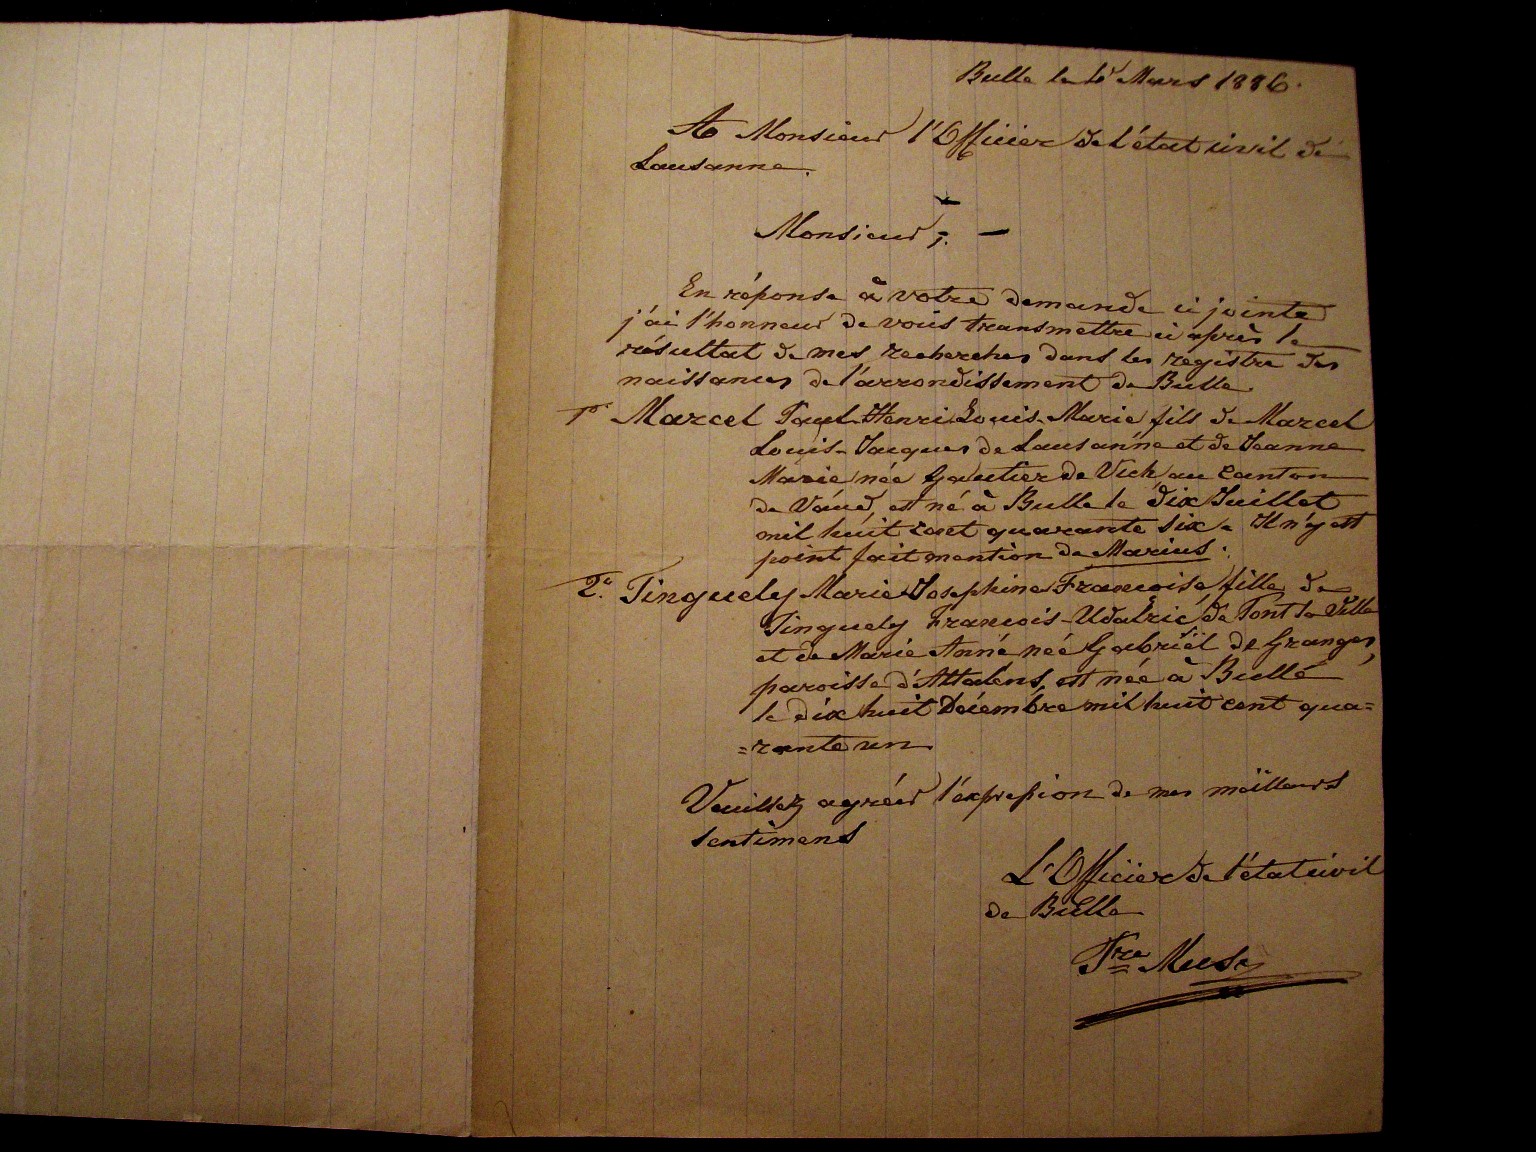 Bulle le Mars 1886.
A Monsieur l'Officier de l'état civil de
Lausanne.
Monsieur, —
En réponse à votre demande ci jointe
j'ai l'honneur de vous transmettre ci après le
résultat de mes recherches dans les régistre des
naissances de l'arrondissement de Bulle.
1° Marcel Paul-Henri Louis-Marie fils de Marcel
Louis-Jacques de Lausanne et de Jeanne
Marie née Gautier de Vich au canton
de Vaud, est né à Bulle le dix Juillet
mil huit cent quarante six. Il n'y est
point fait mention de Marius.
2° Tinguely Marie Josephine Françoise, fille de
Tinguely François-Udalric de Pont la Ville
et de Marie Anne née Gabriël de Granges,
paroisse d'Attalens, est née à Bulle
le dix huit Décembre mil huit cent qua=
=rante un.
Veuillez agréer l'expression de mes meilleurs
sentimens
L'Officier de l'état civil
de Bulle
Musy